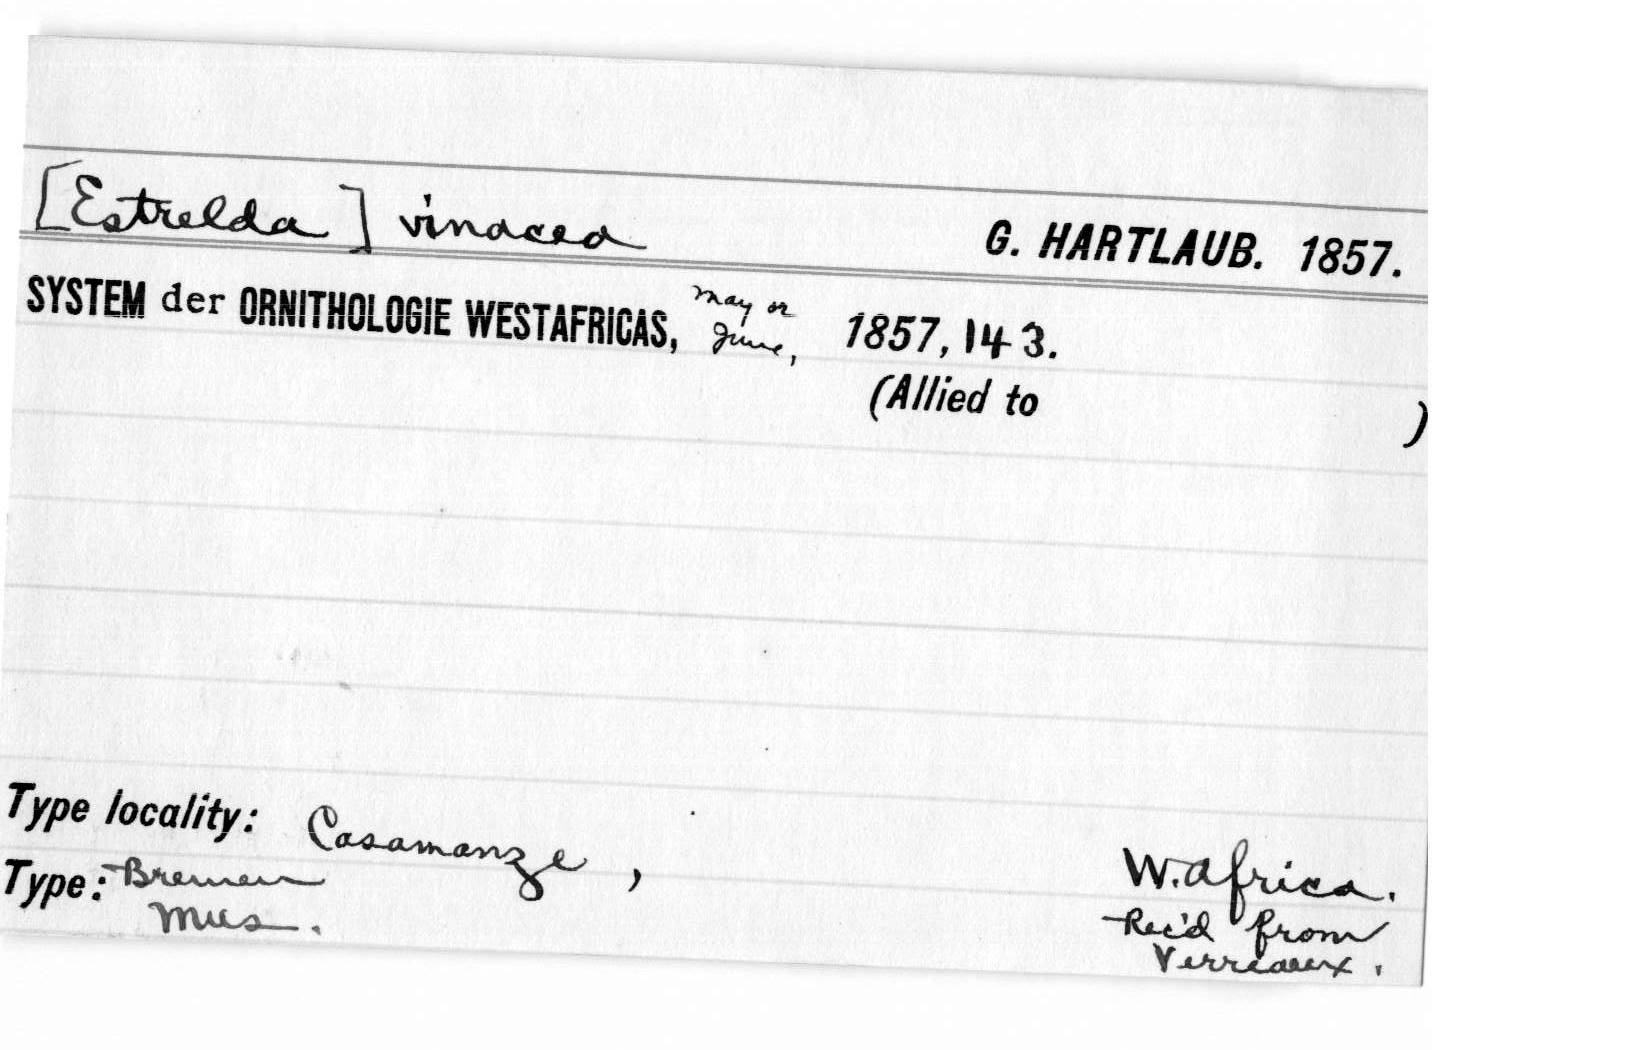 [Estrelda] vinacea G. HARTLAUB. 1857.
SYSTEM der ORNITHOLOGIE WESTAFRICAS, May or June, 1857, 143.
(Allied to )
Type locality: Casamanze, W. Africa.
Type: Bremen Rec'd from
Mus. Verreaux.